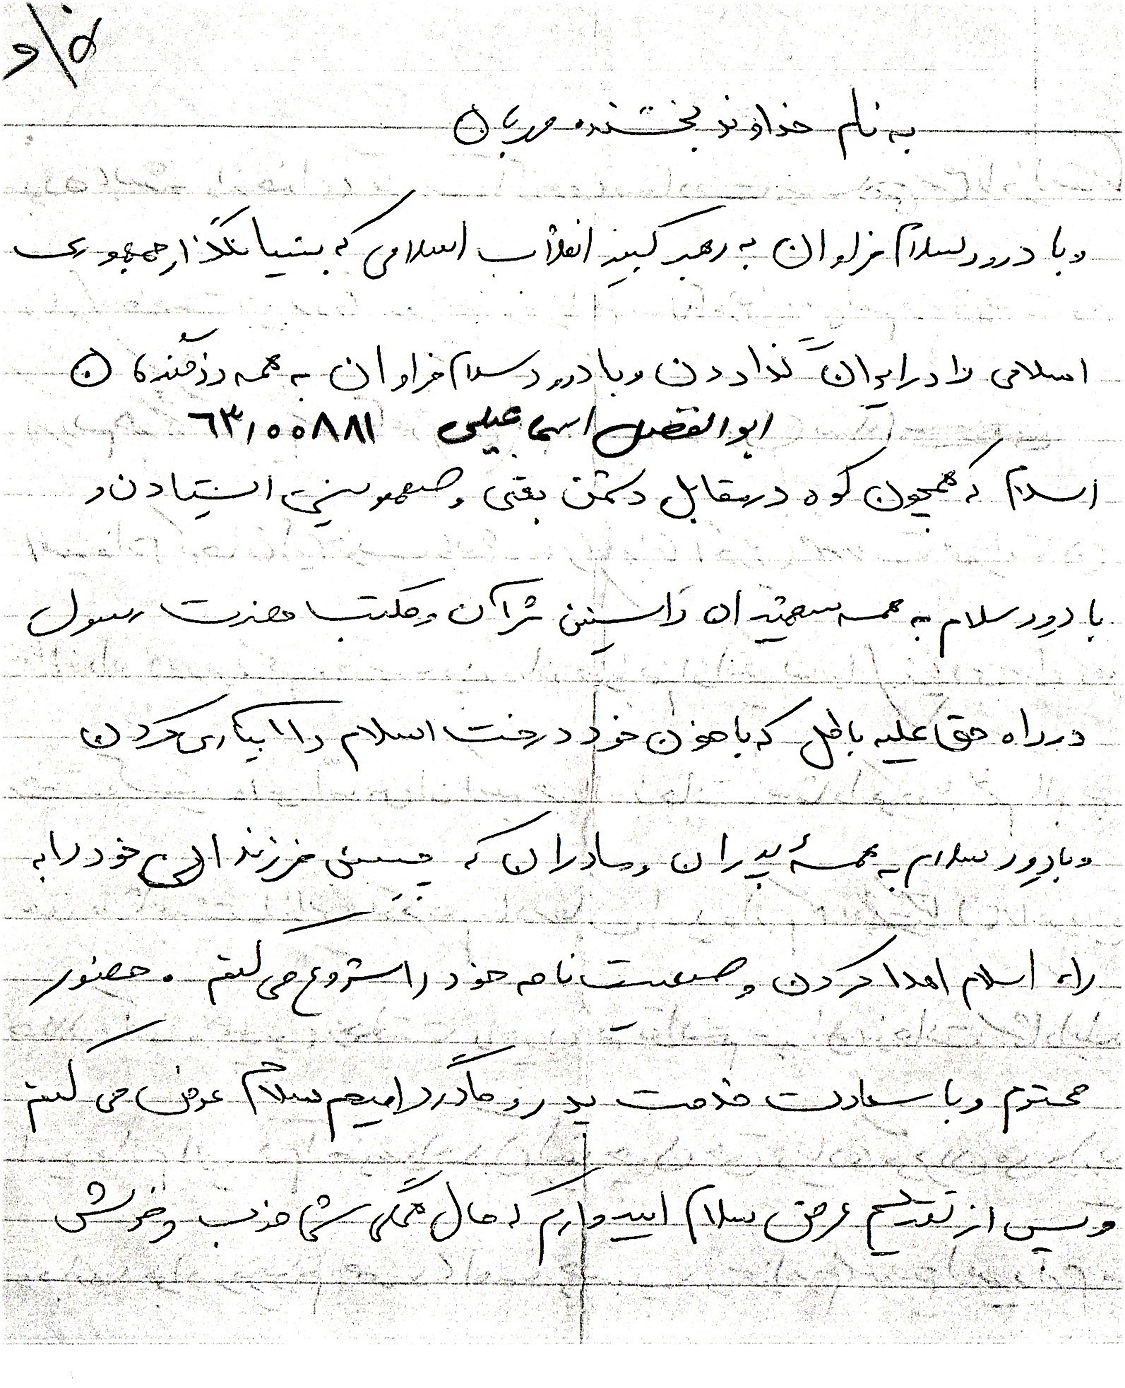 به نام خداوند بخشنده مهربان
و با درود سلام فراوان به رهبر کبیر انقلاب اسلامی که بنیانگذار جمهوری
اسلامی را در ایران ندا دادن و با درود سلام فراوان به همه رزمندهگان
ابوالفضل اسماعیلی ٦٣١٠٠٨٨١
اسلام که همچون کوه در مقابل دشمن بعثی و صهیونیستی استادن و
با درود سلام به همه شهیدان راستین قرآن و مکتب حضرت رسول
در راه حق علیه باطل که با خون خود درخت اسلام را آبیاری کردن
و با درود سلام به همهٔ پدران و مادران که چنین فرزند الهی خود را به
راه اسلام اهدا کردن وصیت نامه خود را شروع می کنم . حضور
محترم و با سعادت خدمت پدر و مادر گرامیم سلام عرض می کنم
و پس از تقدیم عرض سلام امیدوارم که حال همگی شما خوب و خوش